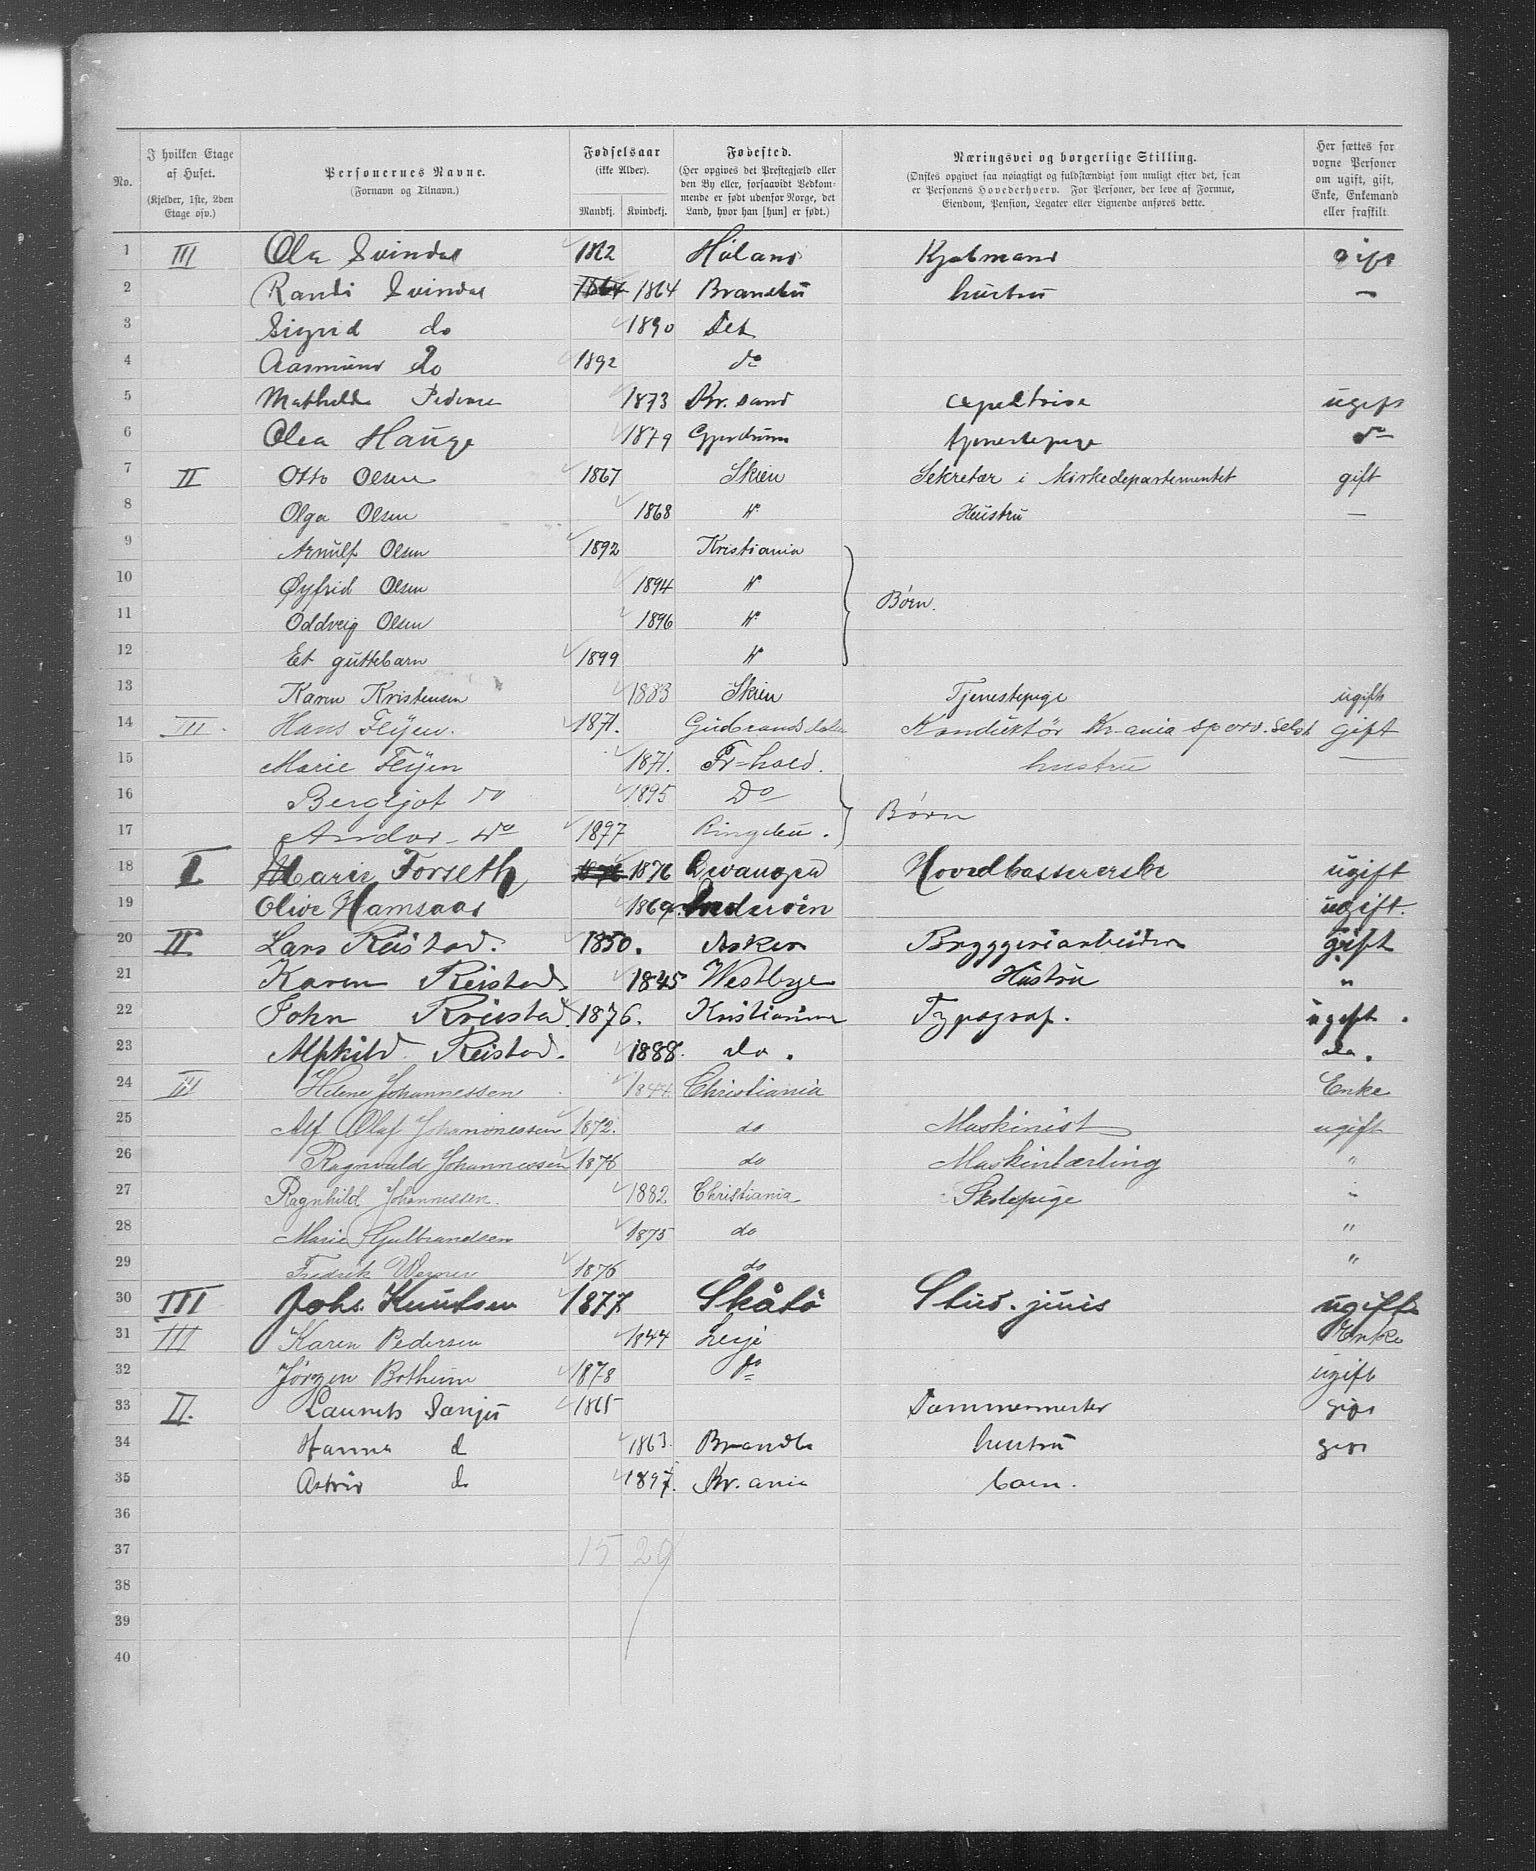 No.
I hvilken Etage af Huset. (Kjelder, 1ste, 2den Etage osv.)
Personernes Navne. (Fornavn og Tilnavn.)
Fødselsaar (ikke Alder). Mandkj. Kvindekj.
Fødested. (Her opgives det Prestegjæld eller den By eller, forsaavidt Vedkommende er født udenfor Norge, det Land, hvor han [hun] er født.)
Næringsvei og borgerlige Stilling. (Ønskes opgivet saa nøiagtigt og fuldstændigt som muligt efter det, som er Personens Hovederhverv. For Personer, der leve af Formue, Eiendom, Pension, Legater eller Lignende anføres dette.)
Her sættes for voxne Personer om ugift, gift, Enke, Enkemand eller fraskilt.
1 III Ola Svindal 1862 Høland Kjøbmand gift
2 Randi Svindal 1864 1864 Brandbu hustru —
3 Sigrid do 1890 Det
4 Aasmund do 1892 do
5 Mathilde 1873 Kr.sand ugift
6 Olea Hauge 1879 Gjerdrum tjenestepige do
7 II Otto Olsen 1867 Skien Sekretær i Kirkedepartementet gift
8 Olga Olsen 1868 " Hustru —
9 Arnulf Olsen 1892 Kristiania
10 Øyfrid Olsen 1894 " Børn.
11 Oddveig Olsen 1896 "
12 Et guttebarn 1899 "
13 Karen Kristensen 1883 Skien Tjenestepige ugift
14 III. Hans Fløjen. 1871. Gudbrandsdalen Konduktør Kr.ania sporv. Selsk gift
15 Marie Fløjen 1871. Fr=hald. hustru —
16 Bergljot do 1895 Do Børn
17 Andor do 1897 Ringebu.
18 I Marie Forseth 1876 1876 ugift
19 Olive Hamsaas 1869 Inderøen ugift.
20 II Lars Reistad. 1850. Asker Bryggeriarbeider gift
21 Karen Reistad. 1845 Westbye Hustru "
22 John Reistad. 1876. Kristiania Typograf. ugift.
23 Alfhild Reistad. 1888. do. do.
24 III Helene Johannessen 1844 Christiania Enke
25 Alf Olaf Johannessen 1872. do Maskinist ugift
26 Ragnvald Johannessen 1876 do Maskinlærling "
27 Ragnhild Johannessen. 1882 Christiania Skolepige "
28 Marie Gulbrandsen 1875 do "
29 Fredrik Werner 1876 do "
30 III Johs. Knutsen 1877 Skåtö Stud. juris ugift
31 III Karen Pedersen 1844 Lesje Enke
32 Jörgen Botheim 1878 do ugift
33 II. Laurits 1865 Tømmermester gift
34 Hanna d 1863. Brandbu hustru gift
35 Astrid do 1897. Kr.ania barn.
36
37 15 20
38
39
40